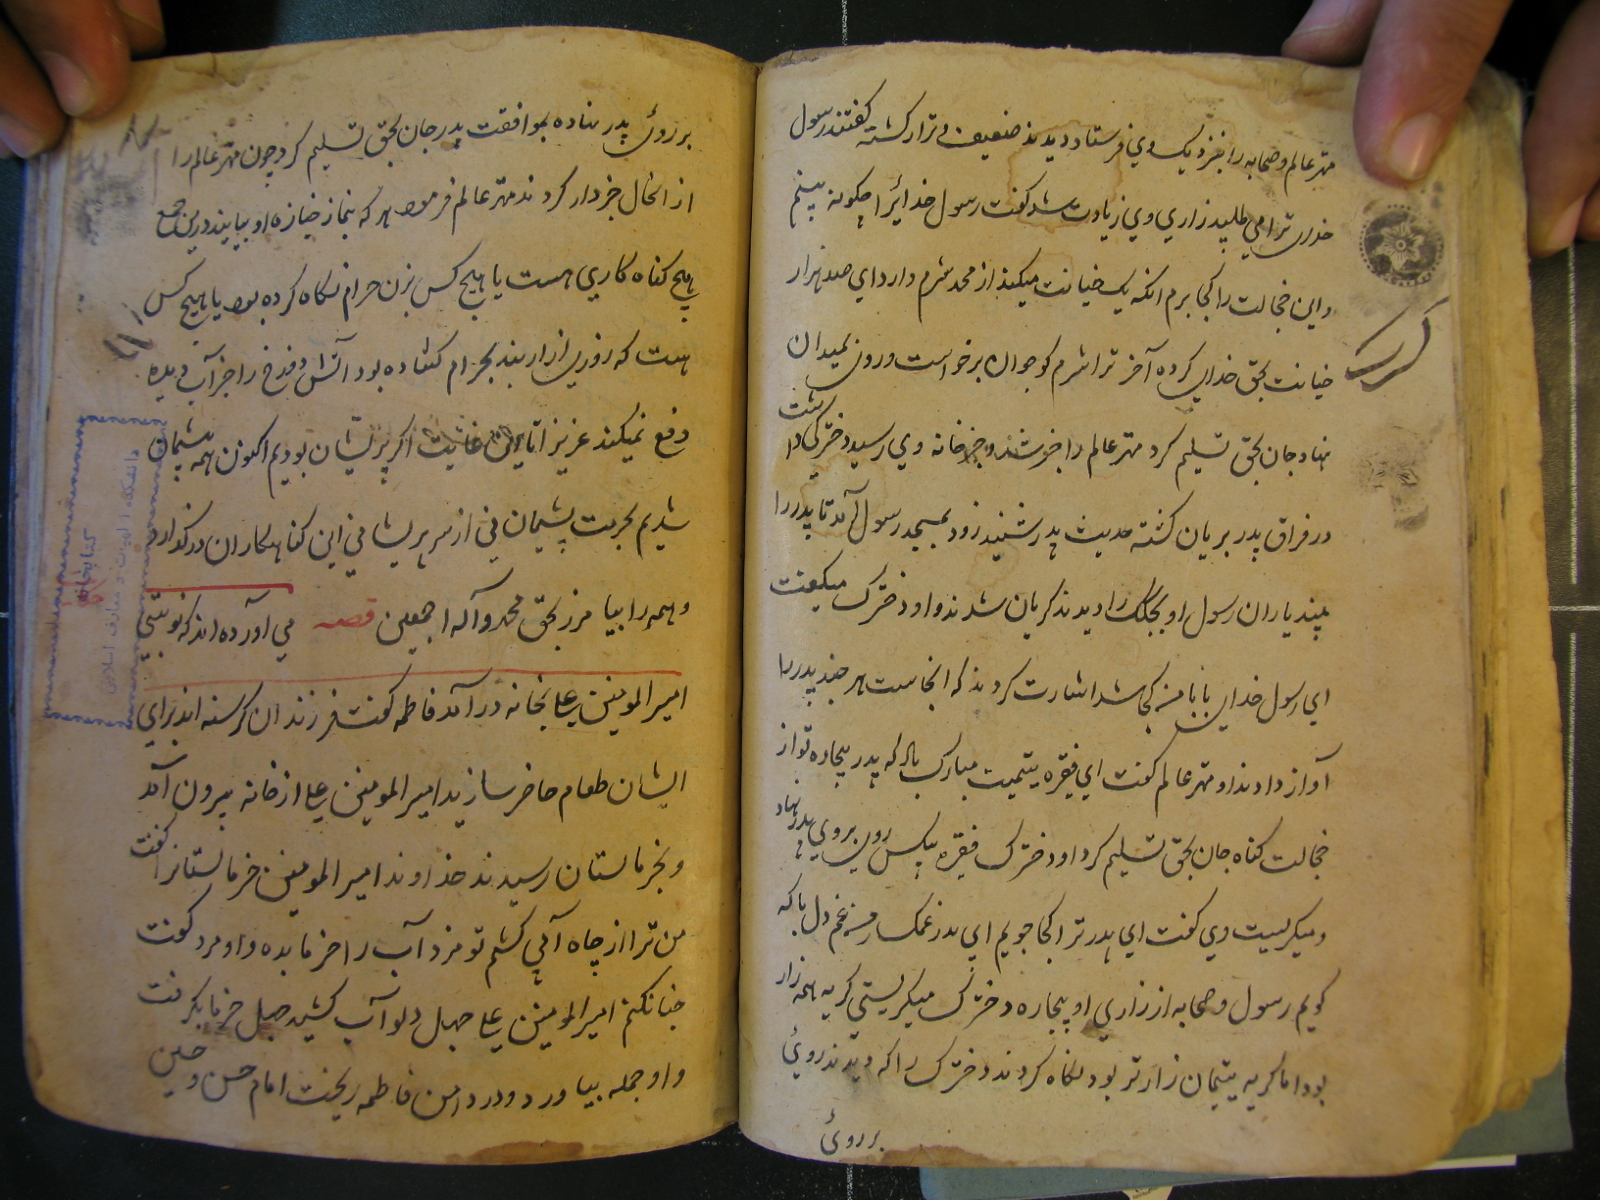 مهتر عالم و صحابه را بنزدیک وی فرستاد دیدند ضعیف و نزار گشته گفتند رسول
خدای ترا می طلبد زاری وی زیادت شد گفت رسول خدایرا چگونه بینم
و این خجالت را کجا برم انکه یک خیانت میکند از محمد شرم دارد ای صد هزار
خیانت بحق خدای کرده آخر ترا شرم کو جوان برخواست و روی بمیدان
نهاد جان بحق تسلیم کرد مهتر عالم را خبر شد و خبر بخانه وی رسید دخترکی داشت
در فراق پدر بریان گشته حدیث پدر شنید زود بمسجد رسول آمد تا پدر را
بیند یاران رسول او را دیدند گریان شدند و او دخترک میگفت
ای رسول خدای بابا من کجا شد اشارت کردند که انجاست هر چند پدر را
آواز داد نداد مهتر عالم گفت ای فقیره یتیمیت مبارک باد که پدر بیچاره تو از
خجالت گناه جان بحق تسلیم کرد او دخترک فقیره بیکس روی بروی پدر نهاد
و میگریست وی گفت ای پدر ترا کجا جویم ای پدر غمگسار من غم دل با که
گویم رسول و صحابه از زاری او بیچاره دخترک میگریستی گریه همه زار
بود اما گریه یتیمان زارتر بود نگاه کردند دخترک را که دیدند روئ
بر روئ
بر روئ پدر نهاده بموافقت پدر جان بحق تسلیم کرد چون مهتر عالم را
از انحال خبردار کردند مهتر عالم فرمود هر که بنماز جنازه او بیایند درین جمع
هیچ گناه کاری هست یا هیچ کس بزن حرام نگاه کرده بود یا هیچ کس
هست که روزی ازار بند بحرام کشاده بود آتش دوزخ را جز آب دیده
دفع نمیکند عزیز اتا این غایت اگر پریشان بودیم اکنون همه پشیمان
شدیم بحرمت پشیمانی از سر پریشانی این گناهکاران درگذار
و همه را بیامرز بحق محمد و آله اجمعین قصه می آورده اند که نوبتی
امیر المومنین علی بخانه در آمد فاطمه گفت فرزندان گرسنه اند برای
ایشان طعام حاضر سازید امیر المومنین علی از خانه بیرون آمد
و بخرماستان رسیدند خداوند امیر المومنین خرماستانرا گفت
من ترا از چاه آب کشم تو مزد آب را خرما بده و او مرد گفت
چنانکنم امیر المومنین علی چهل دلو آب کشید چهل خرما بگرفت
و او جمله بیاورد و در دامن فاطمه ریخت امام حسن و حسین
کتابخانه
دانشکده الهیات و معارف اسلامی